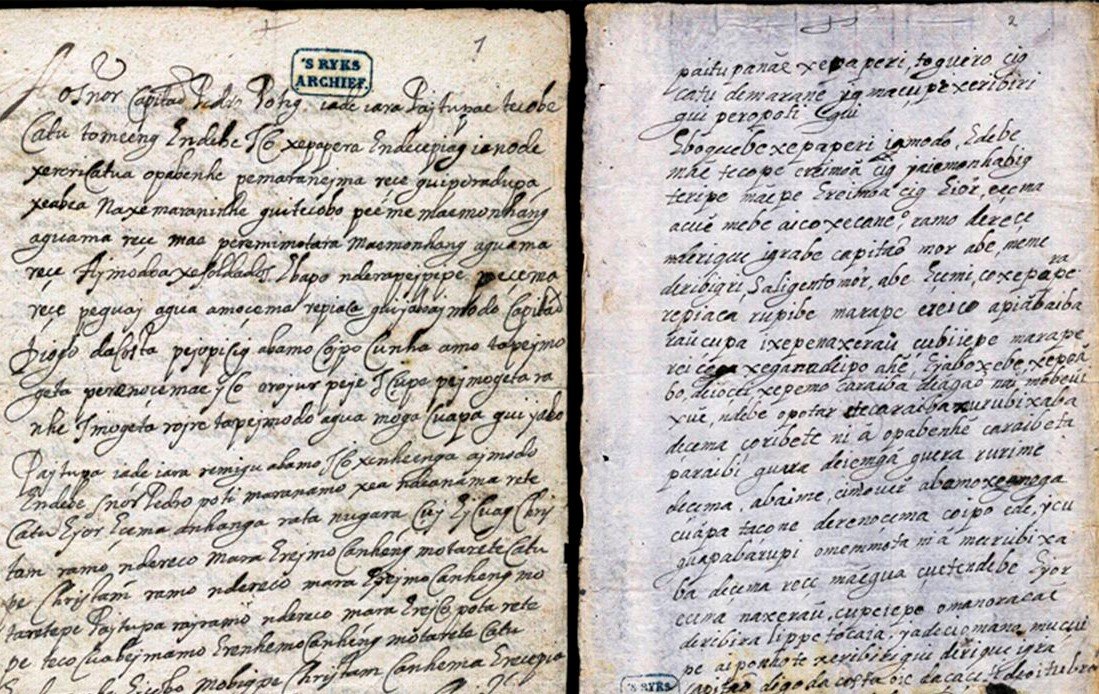 1
'S RYKS
ARCHIEF
Ao Snor Capitão Pedro Potig iade iara Pajtupae tecobe
Catu tomeeng Endebe Jco xepapera Endecepiag ianode
xerericatua opabenhe pemaranejma reçe guiporadupa
xeabea Naxemaranithe guitecobo peême maemonhang
aguama reçe mae peremimotara Maemonhang aguama
reçe Ajmodoa xesoldados Ebapo nderapejpipe pecema
reçe peguaj agua amocema repiaca guijabaj modo Capitão
Diogo dacosta pejopicig abamo Cojpo Cunha amo tapejmo
geta penenocemae Jco orojur peje Jcupa pejmogeta ra
nhe Jmogeta rojre tapejmodo agua moga Cuapa qui jabo
Pajtupa iade iara remigu abamo Jco xenheenga ajmodo
Endebe Snor Pedro poti maranamo xea nameanama rete
Catu Ejor Eçema anhanga rata nugara Cuj Ejcuag Chris
tam ramo ndereco mara Erejmo Canheng motarete Catu
pe Christam ramo ndereco mara Erejmo Canheng mo
taretepe Pajtupa rajramo ndereco mara Ereico pota rete
pe teco Cuabejmamo Erenhemo Canheng motarete Catu
Eicobo mobigpe Christam Canhema Erecepia
2
paitupanæ xepaperi, toguero cig
catu demarane ÿg macupe xeribiri
gui peropoti Egui
Eboqecebe xepaperi iamodo, Edebe
mae tecope ereimoã cig yaiemonhabig
teripe mãepe Ereimoã cig Eior, eẽcma
acuẽ mebe aico xecaneº, ramo dereçe
maerique igrabe capitaõ mor abe, meme
diribigri, Saligento mõr, abe Eumi, coxepapera
repiaca rupibe marape ereico apiabaiba
raũ cupa ixepenaxeraũ cubiiepe marape
rei cega xegaradeipo ahẽ, Eiabo xebe, xepoã
bo, deiocci xepemo caraiba diagao nai mobeũi
xuẽ, ndebe opotar decaraiba rurubixaba
decema coribete ni ã opabenhe caraibeta
paraibi guara deiemgã guera rurime
decema, abaime, cimouir abamo xemoga
cuapa tacone derenocema coipo cde, ycu
guapabarupi omemmota niã murubixa
ba decema reçe mãegua cuetendebe Eyor
ecena naxeraũ, cupeiepo omanoracai
deribira lippe tocaia. yadeciomana mucui
pe aiponhote xeribiri gui diri que igra
Capitaõ digo da costa
'S RYKS